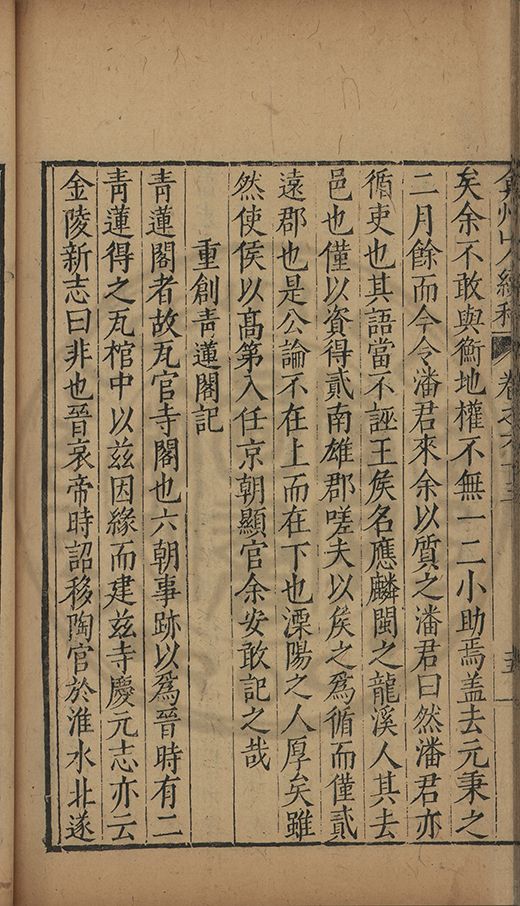 弇州山人續稿 卷之六十三 十五
矣余不敢與衡地權不無一二小助焉盖去元秉之
二月餘而今令潘君來余以質之潘君曰然潘君亦
循吏也其語當不誣王侯名應麟閩之龍溪人其去
邑也僅以資得貳南雄郡嗟夫以侯之爲循而僅貳
遠郡也是公論不在上而在下也溧陽之人厚矣雖
然使侯以高第入任京朝顯官余安敢記之哉
重創青蓮閣記
青蓮閣者故瓦官寺閣也六朝事跡以爲晉時有二
青蓮得之瓦棺中以兹因緣而建兹寺慶元志亦云
金陵新志曰非也晉哀帝時詔移陶官於淮水北遂